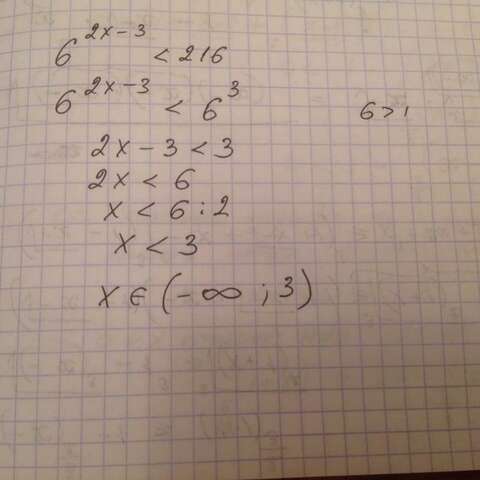 6^{2x-3} < 216
6^{2x-3} < 6^3 6 > 1
2x - 3 < 3
2x < 6
x < 6 : 2
x < 3
x ∈ (-∞ ; 3)